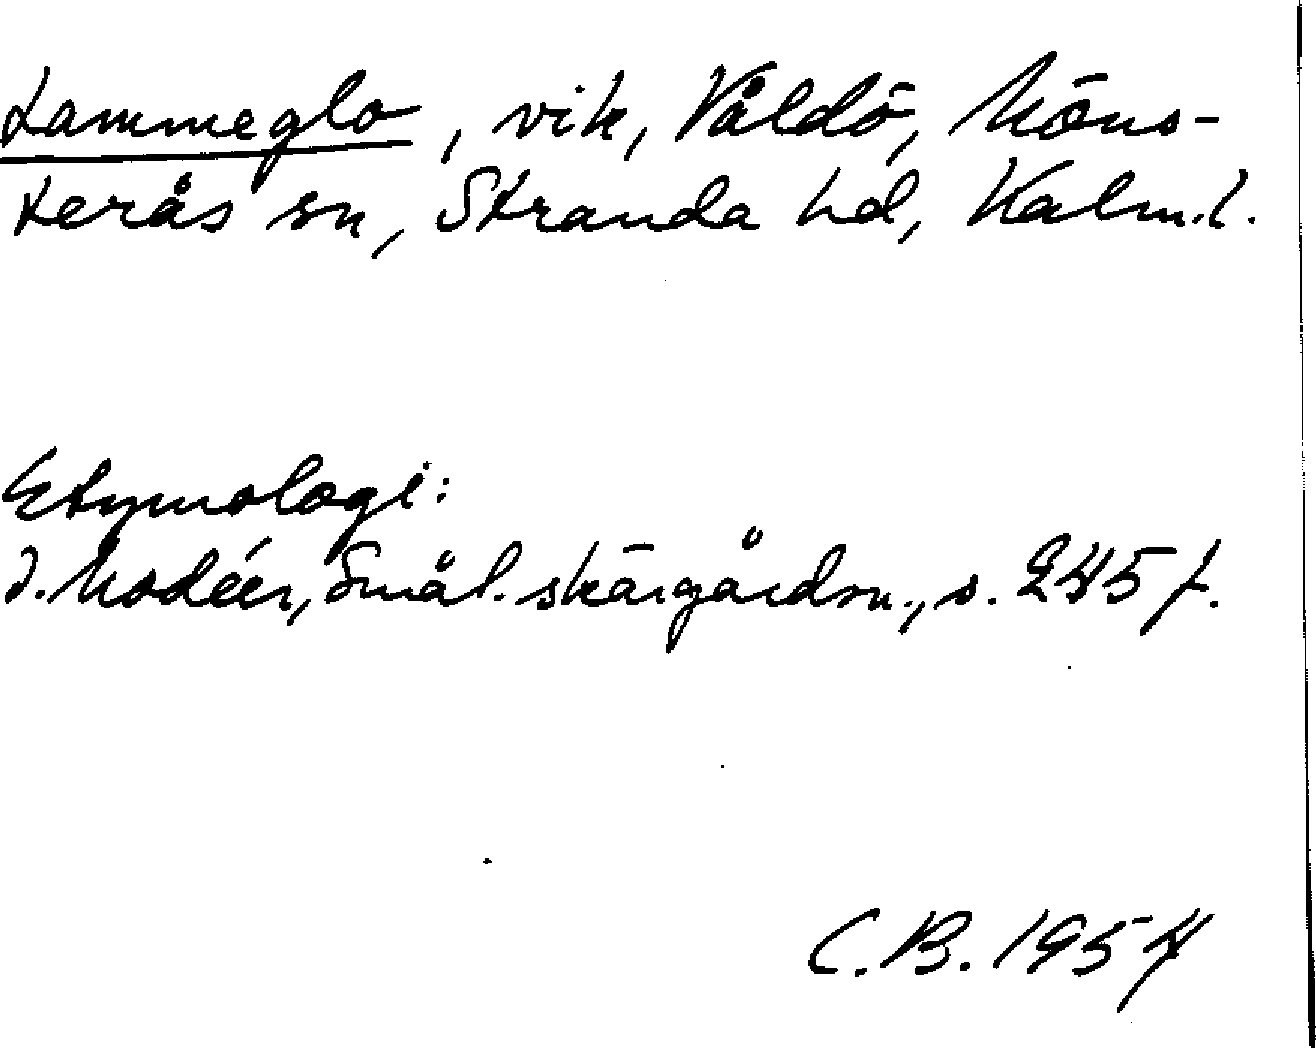 Lammeglo, vik, Våldö, Möns-
terås sn, Stranda hd, Kalm.l.
Etymologi:
I. Modéer, Smål. skärgårdsn., s. 245 f.
C.B. 1954